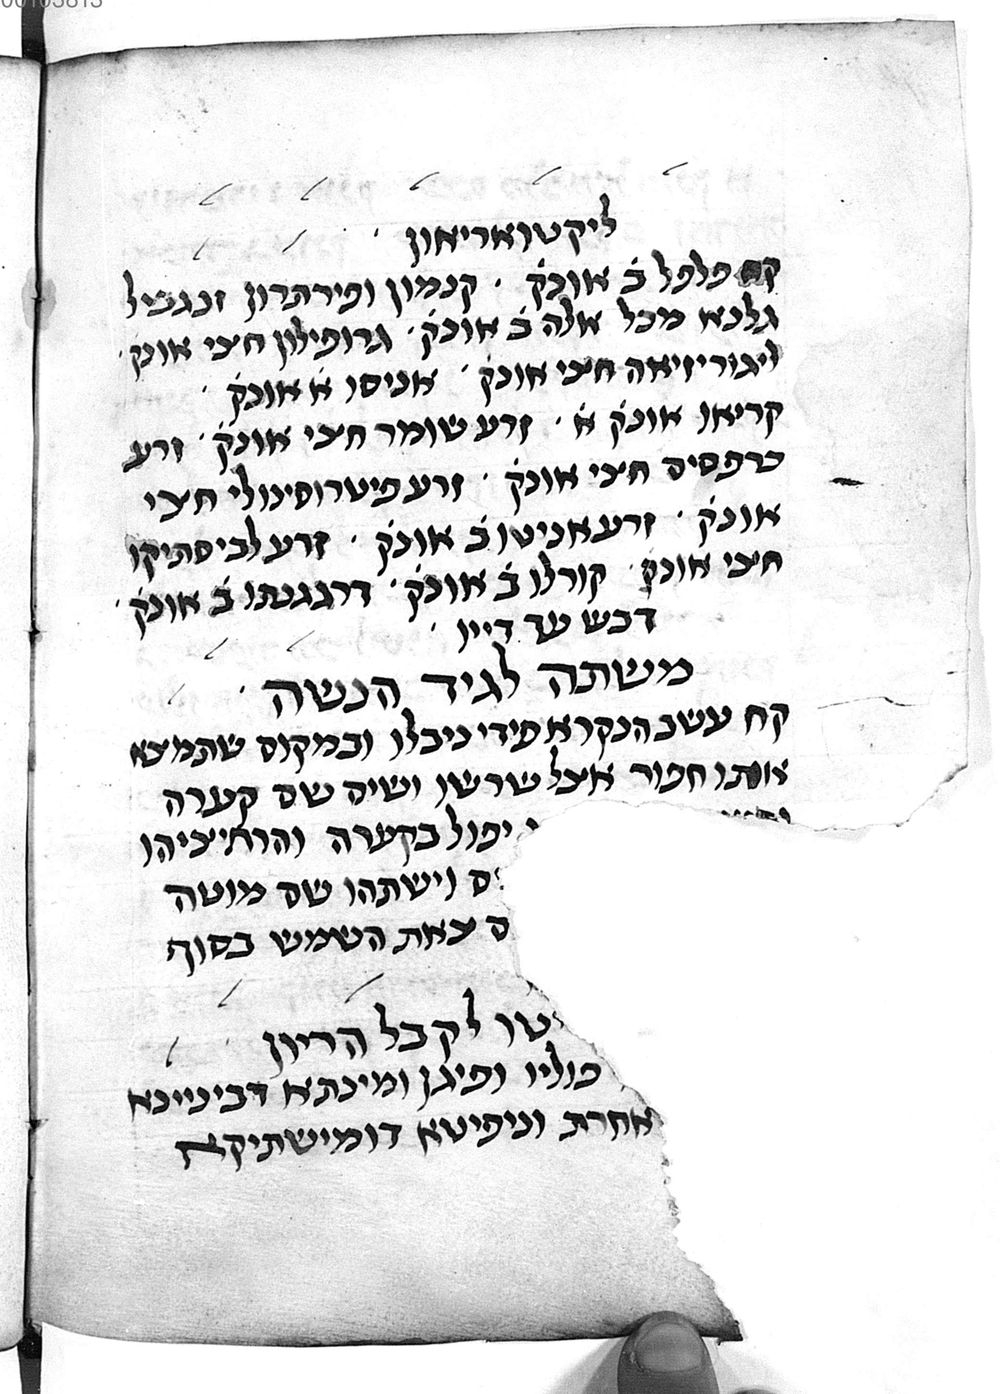 ליקטואריאון
קח פלפל ב׳ אונק׳ · קנמון ופירתרון זנגביל
גלנא מכל אלה ב׳ אונק׳ · גרופילון חצי אונק׳ ·
ליגוריזיאה חצי אונק׳ · אניסו א׳ אונק׳ ·
קריאו אונק׳ א׳ · זרע שומר חצי אונק׳ · זרע
כרפסיס חצי אונק׳ · זרע פיטרוסינולי חצי
אונק׳ · זרע אניטו ב׳ אונק׳ · זרע לביסתיקו
חצי אונק׳ · קורלו ב׳ אונק׳ · דרגגנתו ב׳ אונק׳ ·
דבש עד דייו ·
משתה לגיד הנשה ·
קח עשב הנקרא פידי ניבלו ובמקום שתמצא
אותו חפור אצל שרשו ושים שם קערה
יפול בקערה והרתיציהו
וישתהו שם מוטה
צאת השמש בסוף
לקבל הריון
פוליו ופיגן ומינתא דביניינא
אחרת וניפיטא דומישתיקה